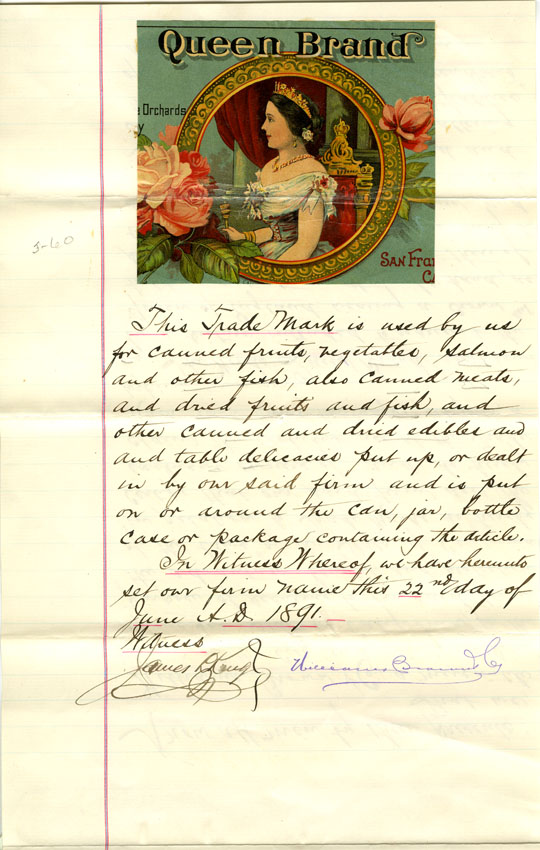 Queen Brand
e Orchards
y
San Fran
Ca
5-60
This Trade Mark is used by us
for canned fruits, vegetables, salmon
and other fish, also canned meats,
and dried fruits and fish, and
other canned and dried edibles and
and table delicacies put up, or dealt
in by our said firm and is put
on or around the can, jar, bottle
case or package containing the article.
In Witness Whereof, we have hereunto
set our firm name this 22nd day of
June A.D. 1891.
Witness
James L. King
Williams Brown & Co